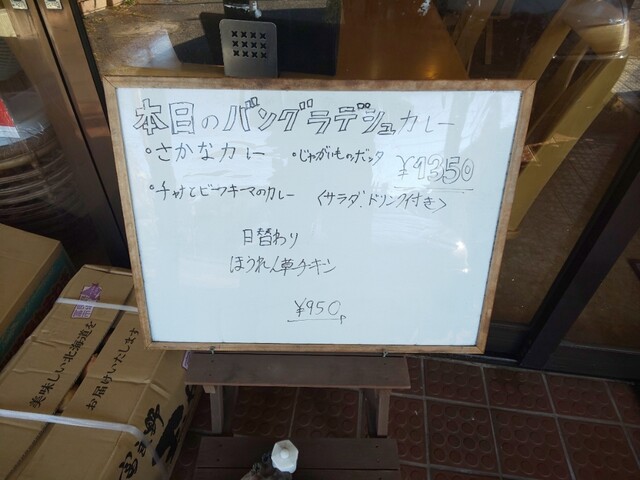 本日のバングラデシュカレー
・さかなカレー ・じゃがいものボッタ
¥1350
・チャナとビーフキーマのカレー 〈サラダ.ドリンク付き〉
日替わり
ほうれん草チキン
¥950
美味しい北海道を
お届けいたします
富良野